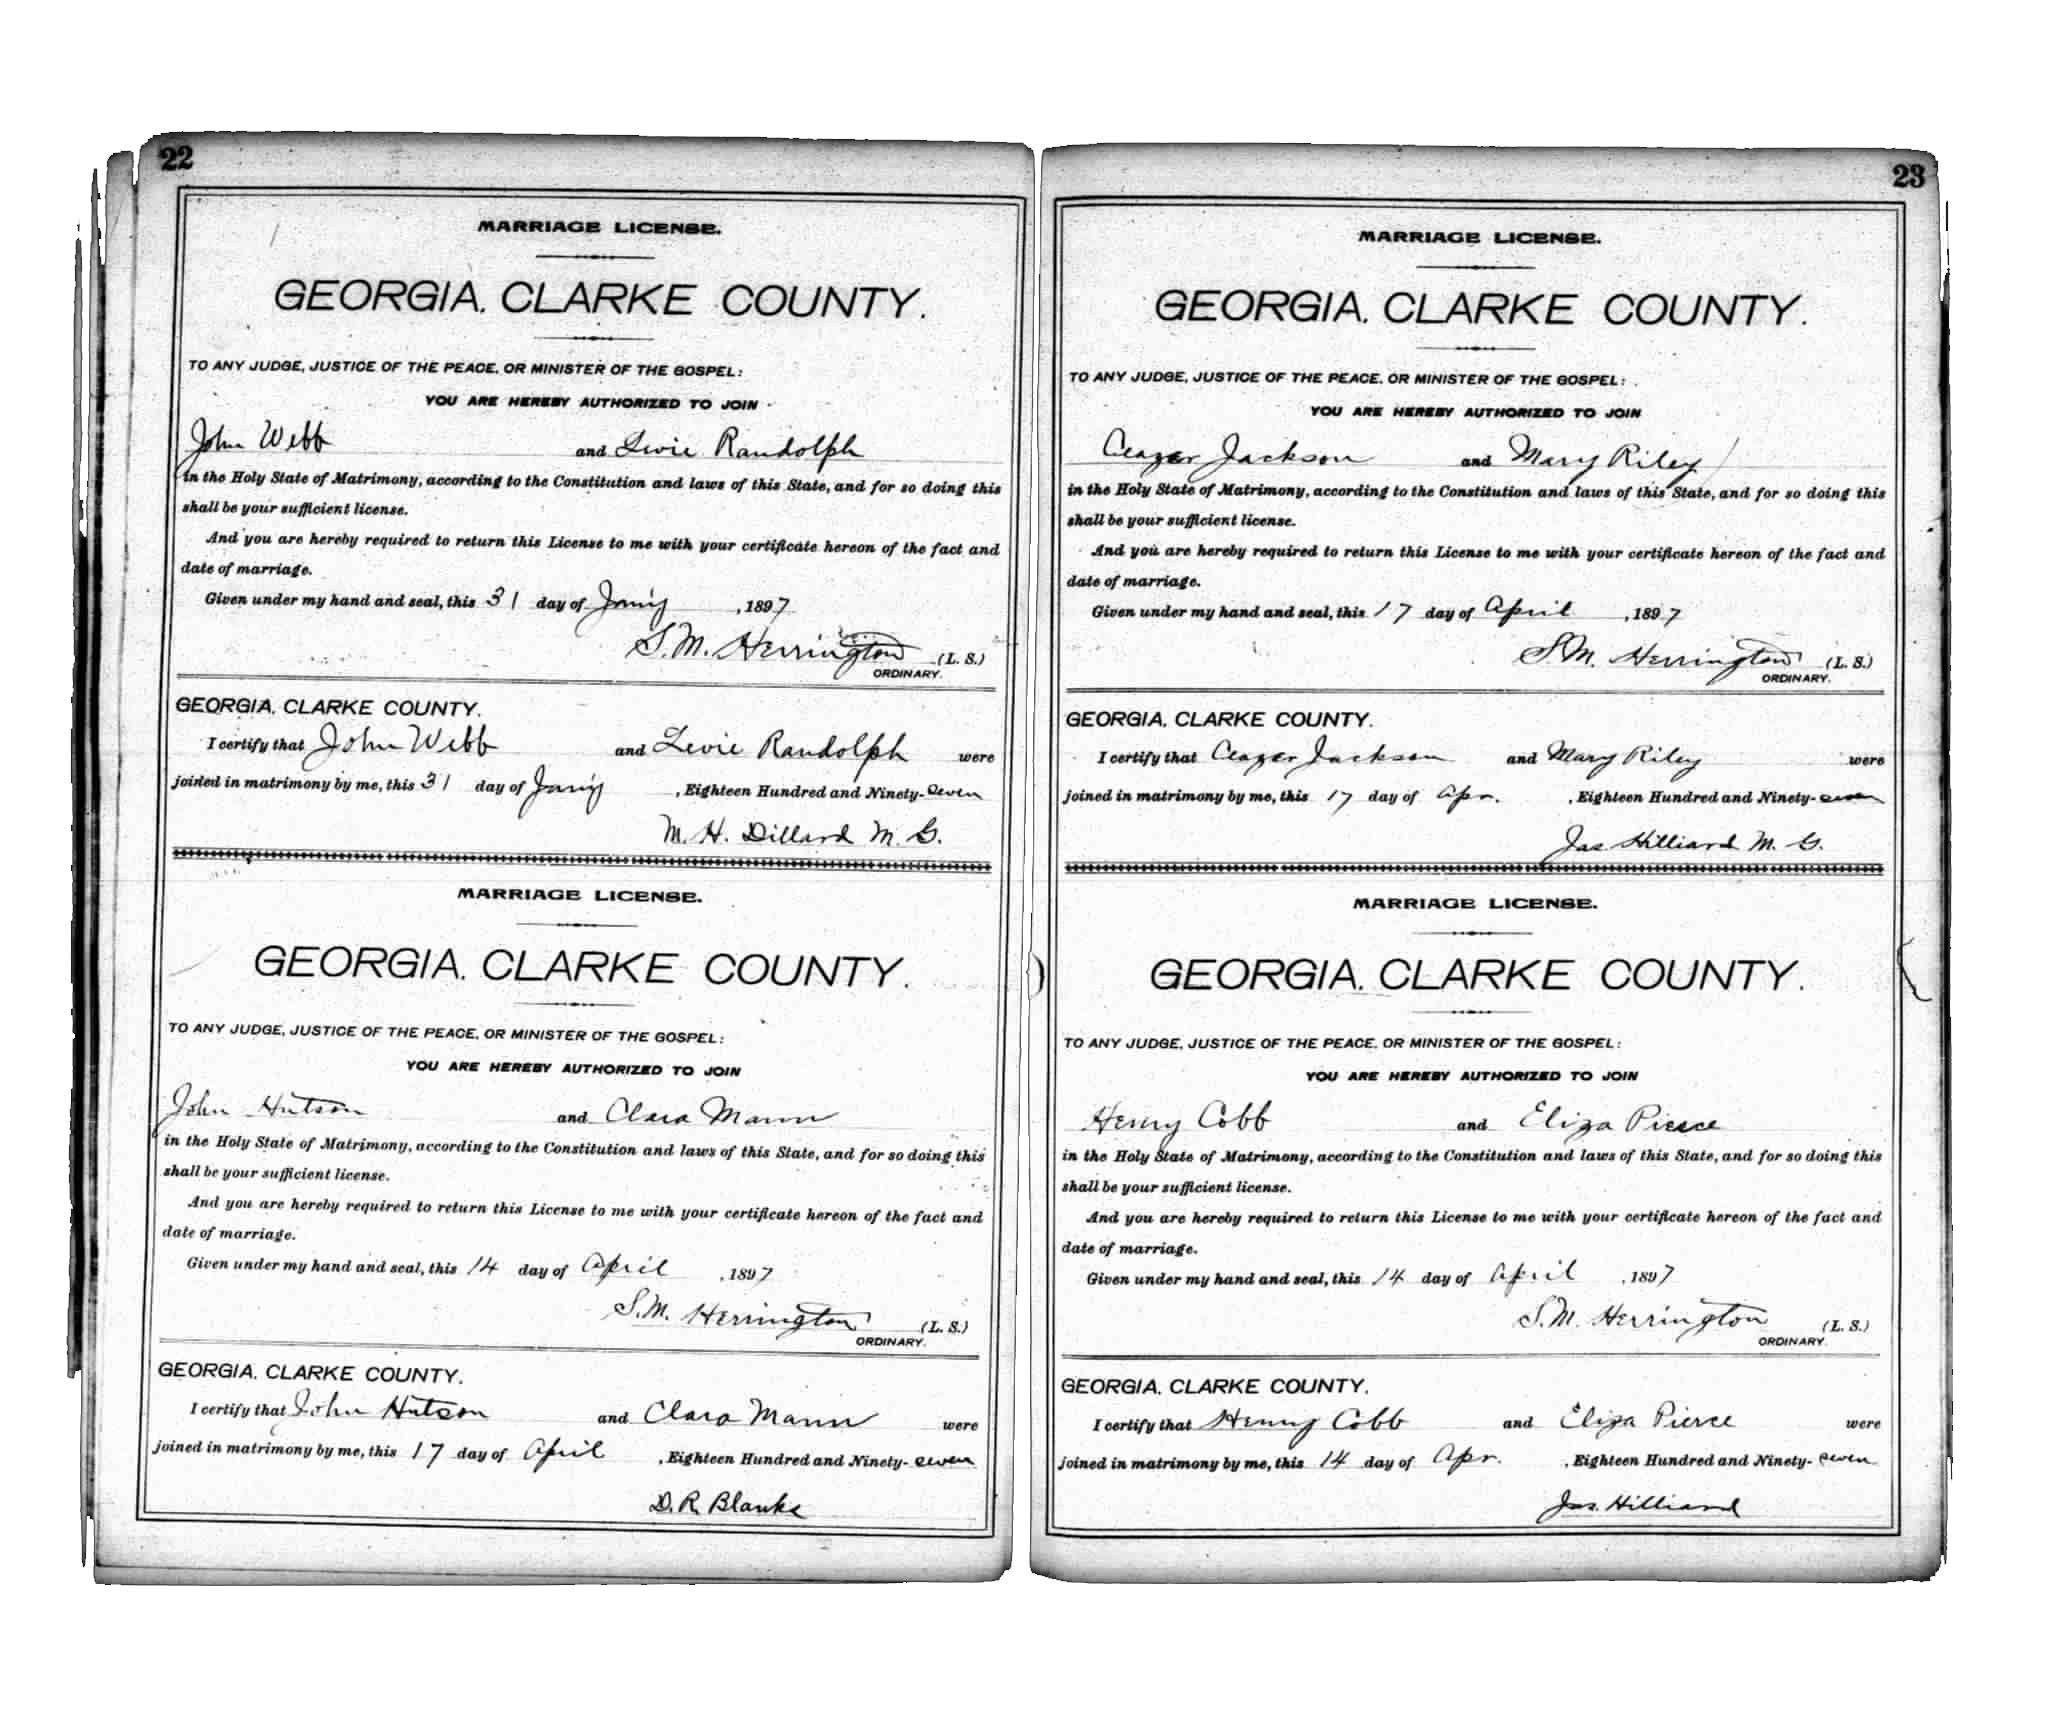 22
MARRIAGE LICENSE.
GEORGIA, CLARKE COUNTY.
TO ANY JUDGE, JUSTICE OF THE PEACE, OR MINISTER OF THE GOSPEL:
YOU ARE HEREBY AUTHORIZED TO JOIN
John Webb and Levie Randolph
in the Holy State of Matrimony, according to the Constitution and laws of this State, and for so doing this
shall be your sufficient license.
And you are hereby required to return this License to me with your certificate hereon of the fact and
date of marriage.
Given under my hand and seal, this 31 day of Jan'y, 1897
S. M. Herrington (L. S.)
ORDINARY.
GEORGIA, CLARKE COUNTY.
I certify that John Webb and Levie Randolph were
joined in matrimony by me, this 31 day of Jan'y, Eighteen Hundred and Ninety-seven
M. H. Dillard M. G.
MARRIAGE LICENSE.
GEORGIA, CLARKE COUNTY.
TO ANY JUDGE, JUSTICE OF THE PEACE, OR MINISTER OF THE GOSPEL:
YOU ARE HEREBY AUTHORIZED TO JOIN
John Hutson and Clara Mann
in the Holy State of Matrimony, according to the Constitution and laws of this State, and for so doing this
shall be your sufficient license.
And you are hereby required to return this License to me with your certificate hereon of the fact and
date of marriage.
Given under my hand and seal, this 14 day of April, 1897
S. M. Herrington (L. S.)
ORDINARY.
GEORGIA, CLARKE COUNTY.
I certify that John Hutson and Clara Mann were
joined in matrimony by me, this 17 day of April, Eighteen Hundred and Ninety-seven
D. R. Blanks
23
MARRIAGE LICENSE.
GEORGIA, CLARKE COUNTY.
TO ANY JUDGE, JUSTICE OF THE PEACE, OR MINISTER OF THE GOSPEL:
YOU ARE HEREBY AUTHORIZED TO JOIN
Ceazer Jackson and Mary Riley
in the Holy State of Matrimony, according to the Constitution and laws of this State, and for so doing this
shall be your sufficient license.
And you are hereby required to return this License to me with your certificate hereon of the fact and
date of marriage.
Given under my hand and seal, this 17 day of April, 1897
S. M. Herrington (L. S.)
ORDINARY.
GEORGIA, CLARKE COUNTY.
I certify that Ceazer Jackson and Mary Riley were
joined in matrimony by me, this 17 day of Apr., Eighteen Hundred and Ninety-seven
Jas Hilliard M. G.
MARRIAGE LICENSE.
GEORGIA, CLARKE COUNTY.
TO ANY JUDGE, JUSTICE OF THE PEACE, OR MINISTER OF THE GOSPEL:
YOU ARE HEREBY AUTHORIZED TO JOIN
Henry Cobb and Eliza Pierce
in the Holy State of Matrimony, according to the Constitution and laws of this State, and for so doing this
shall be your sufficient license.
And you are hereby required to return this License to me with your certificate hereon of the fact and
date of marriage.
Given under my hand and seal, this 14 day of April, 1897
S. M. Herrington (L. S.)
ORDINARY.
GEORGIA, CLARKE COUNTY.
I certify that Henry Cobb and Eliza Pierce were
joined in matrimony by me, this 14 day of Apr., Eighteen Hundred and Ninety-seven
Jas. Hilliard